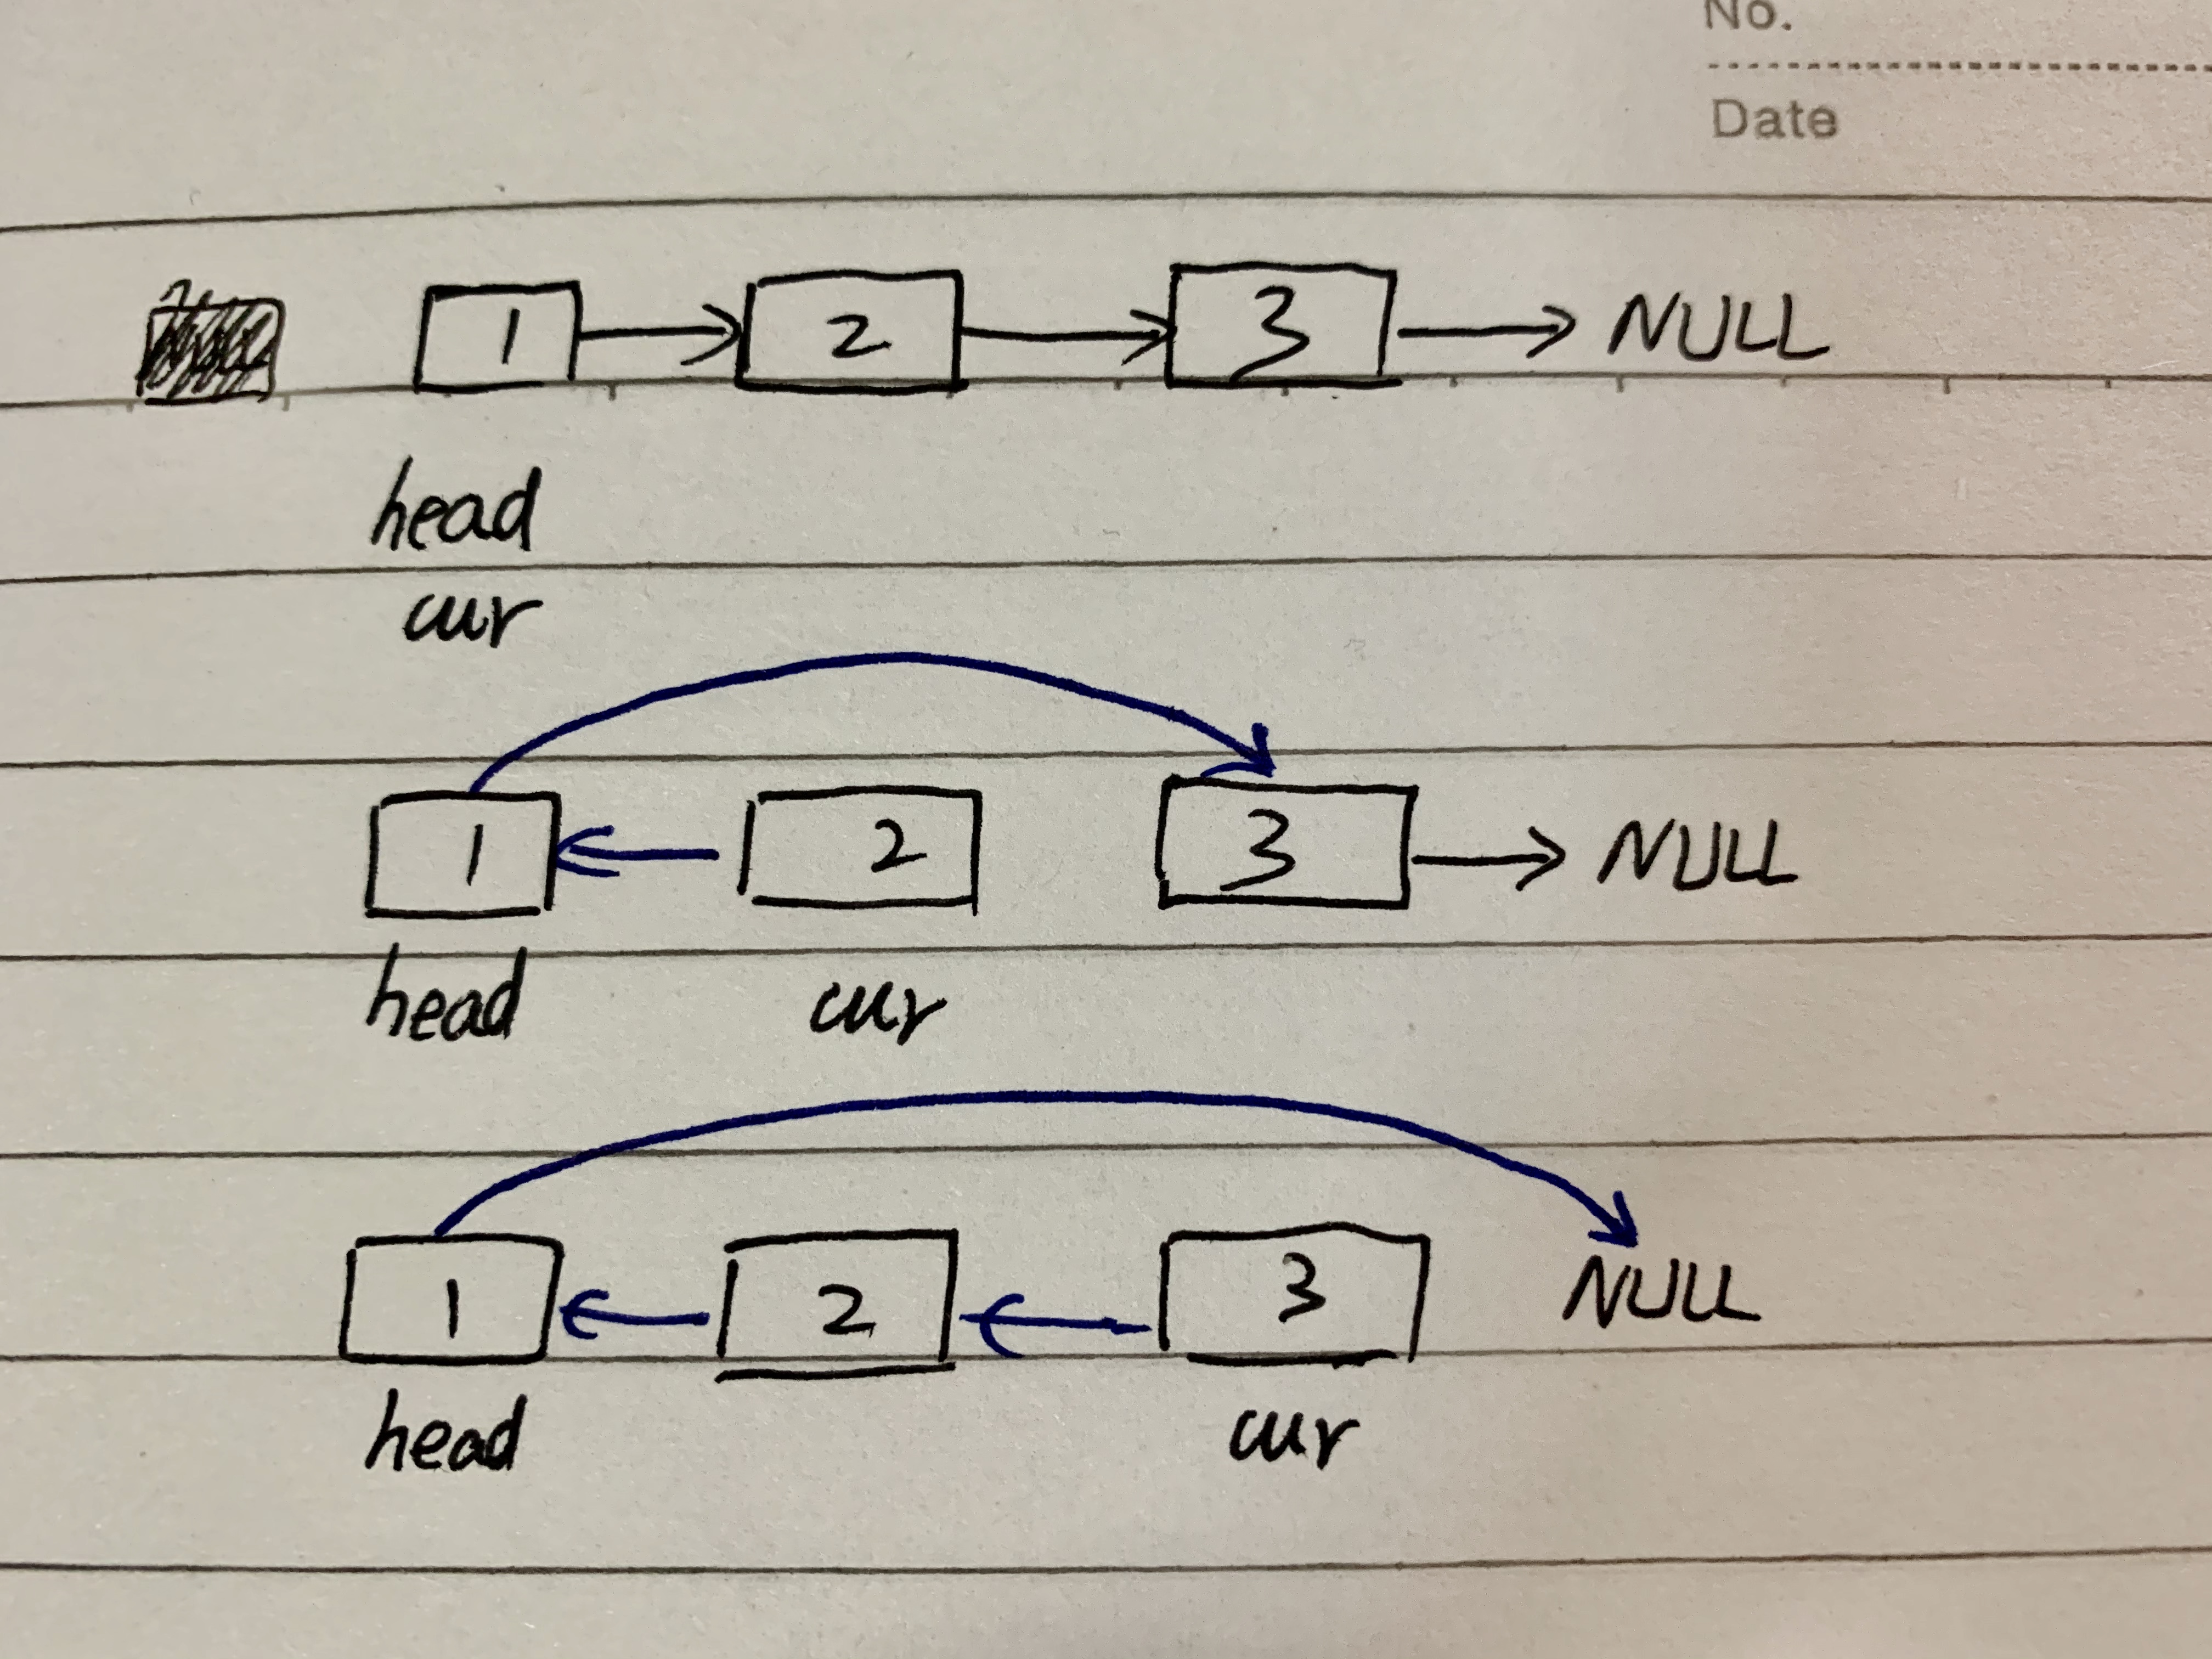 No.
Date
1 2 3 NULL
head
cur
1 2 3 NULL
head cur
1 2 3 NULL
head cur